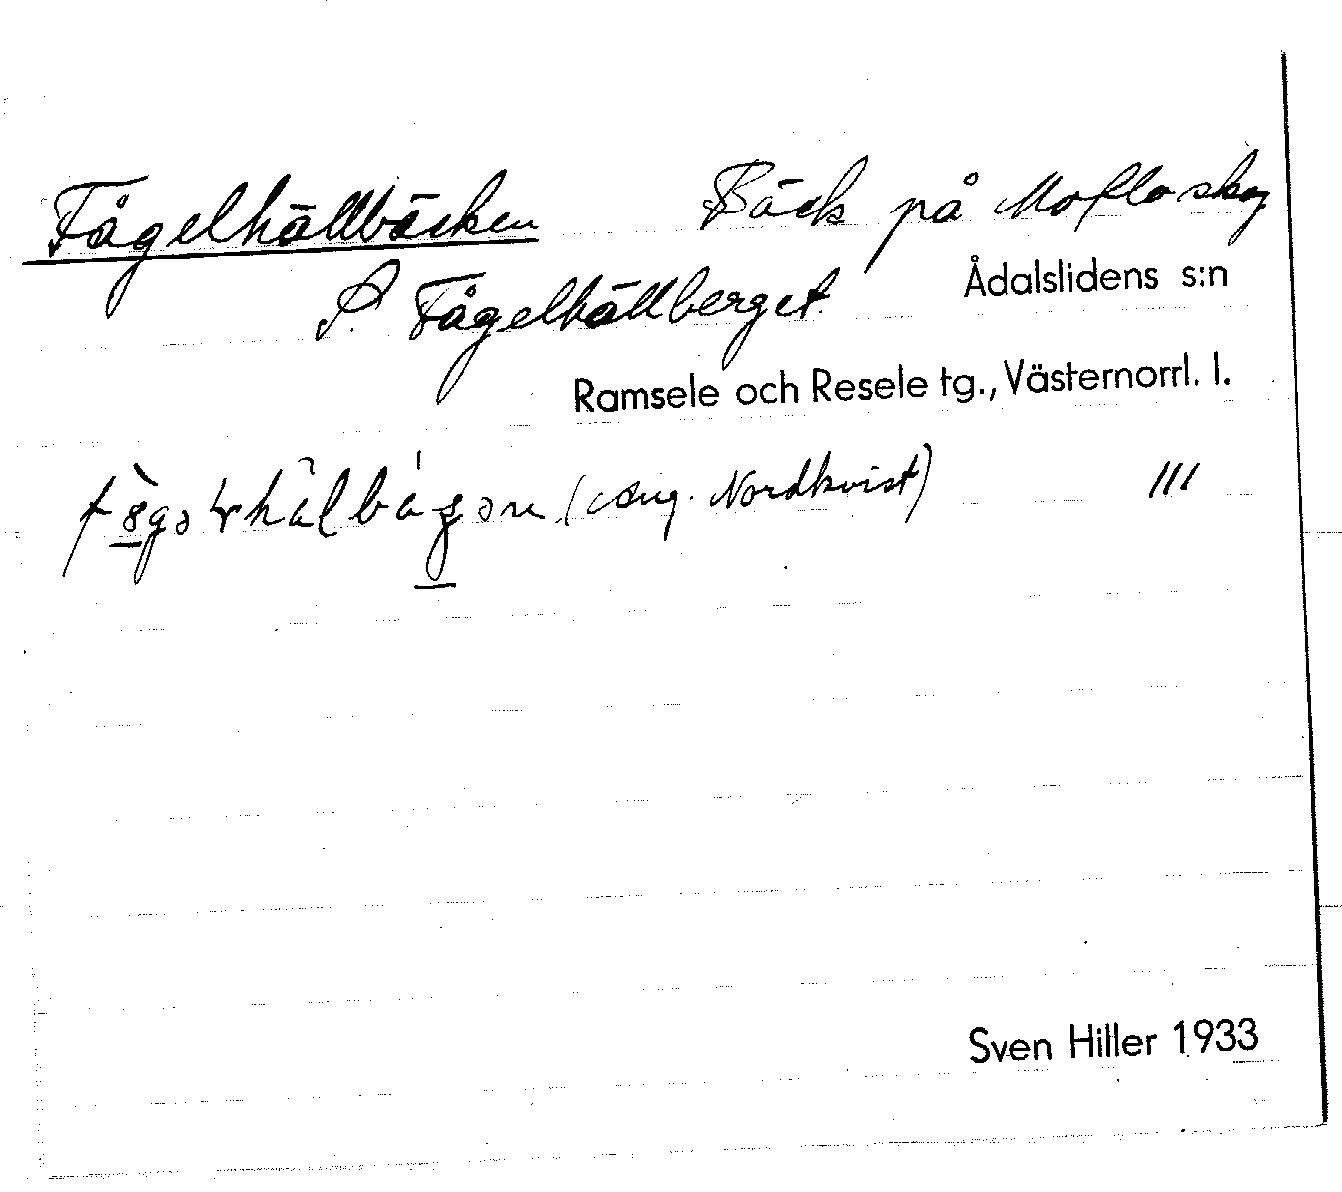 Fågelhällbäcken Bäck på Mofla skog
S. Fågelhällberget. Ådalslidens s:n
Ramsele och Resele tg., Västernorrl. l.
(Aug. Nordkvist) III
Sven Hiller 1933